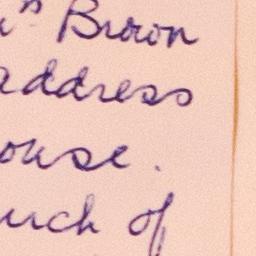 Brown
address
ouse.
uch of